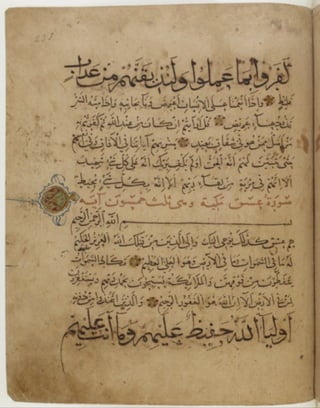 كفروا بما عملوا ولنذيقنهم من عذاب
غليظ واذا انعمنا على الانسان اعرض ونا بجانبه واذا مسه الشر
فذو دعاء عريض قل ارايتم ان كان من عند الله ثم كفرتم به
من اضل ممن هو في شقاق بعيد سنريهم اياتنا في الافاق وفي انفسهم
حتى يتبين لهم انه الحق اولم يكف بربك انه على كل شيء شهيد
الا انهم في مرية من لقاء ربهم الا انه بكل شيء محيط
سورة عسق مكية وهي ثلث وخمسون آية
بسم الله الرحمن الرحيم
حم عسق كذلك يوحي اليك والى الذين من قبلك الله العزيز الحكيم
له ما في السموات وما في الارض وهو العلي العظيم تكاد السموات
يتفطرن من فوقهن والملائكة يسبحون بحمد ربهم ويستغفرون
لمن في الارض الا ان الله هو الغفور الرحيم والذين اتخذوا من دونه
اولياء الله حفيظ عليهم وما انت عليهم